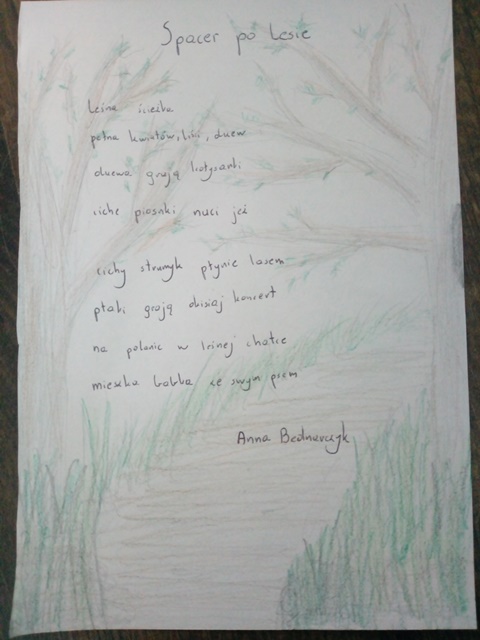 Spacer po lesie
leśna ścieżka
pełna kwiatów, liści, drzew
drzewa grają kołysanki
ciche piosnki nuci jeż
cichy strumyk płynie lasem
ptaki grają dzisiaj koncert
na polanie w leśnej chatce
mieszka babka ze swym psem
Anna Bednarczyk